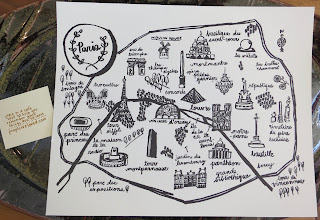 Paris
moulin rouge
basilique du
sacré-coeur
arc de
triomphe
montmartre
les
champs
élysées
opéra
garnier
la villette
les buttes
chaumont
bois de
boulogne
trocadéro
concorde
louvre
musée d'orsay
parc des
princes
tour
eiffel
notre
dame
cimetière du père
lachaise
maison
de la
radio
tour
montparnasse
jardin du
luxembourg
panthéon
bastille
grande
bibliothèque
bercy
parc des
expositions
bois de
vincennes